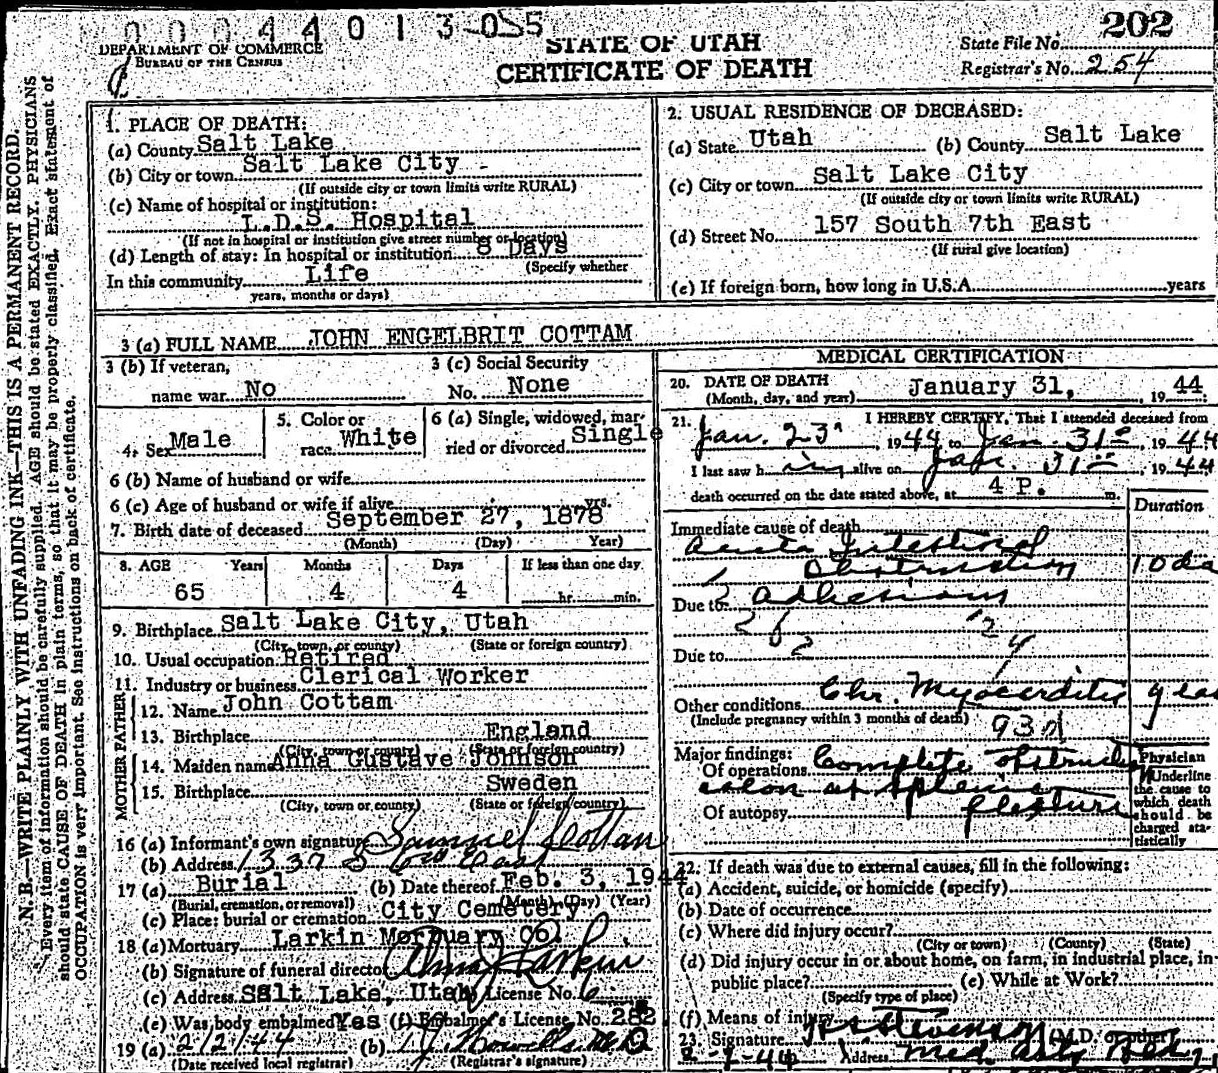 0 0 0 4 4 0 1 3 0 5 5
202
DEPARTMENT OF COMMERCE
BUREAU OF THE CENSUS
STATE OF UTAH
CERTIFICATE OF DEATH
State File No.
Registrar's No. 254
N. B.—WRITE PLAINLY WITH UNFADING INK—THIS IS A PERMANENT RECORD.
Every item of information should be carefully supplied. AGE should be stated EXACTLY. PHYSICIANS
should state CAUSE OF DEATH in plain terms, so that it may be properly classified. Exact statement of
OCCUPATION is very important. See instructions on back of certificate.
1. PLACE OF DEATH:
(a) County Salt Lake
(b) City or town Salt Lake City
(If outside city or town limits write RURAL)
(c) Name of hospital or institution:
L.D.S. Hospital
(If not in hospital or institution give street number or location)
(d) Length of stay: In hospital or institution 8 Days
(Specify whether
In this community Life
years, months or days)
2. USUAL RESIDENCE OF DECEASED:
(a) State Utah (b) County Salt Lake
(c) City or town Salt Lake City
(If outside city or town limits write RURAL)
(d) Street No. 157 South 7th East
(If rural give location)
(e) If foreign born, how long in U.S.A. years
3 (a) FULL NAME JOHN ENGELBRIT COTTAM
3 (b) If veteran,
name war No
3 (c) Social Security
No. None
4. Sex Male
5. Color or
race White
6 (a) Single, widowed, mar-
ried or divorced Single
6 (b) Name of husband or wife
6 (c) Age of husband or wife if alive yrs.
7. Birth date of deceased September 27, 1878
(Month) (Day) Year)
8. AGE Years Months Days If less than one day
65 4 4 hr. min.
9. Birthplace Salt Lake City, Utah
(City, town, or county) (State or foreign country)
10. Usual occupation Retired
11. Industry or business Clerical Worker
FATHER
12. Name John Cottam
13. Birthplace England
(City, town or county) (State or foreign country)
MOTHER
14. Maiden name Anna Gustave Johnson
15. Birthplace Sweden
(City, town or county) (State or foreign country)
16 (a) Informant's own signature Samuel Cottam
(b) Address 1337 S East
17 (a) Burial (b) Date thereof Feb. 3, 1944
(Burial, cremation, or removal) (Month) (Day) (Year)
(c) Place: burial or cremation City Cemetery
18 (a) Mortuary Larkin Mortuary Co.
(b) Signature of funeral director Larkin
(c) Address Salt Lake, Utah License No. 6
(e) Was body embalmed Yes (f) Embalmer's License No. 282
19 (a) 2/2/44 (b) M.D.
(Date received local registrar) (Registrar's signature)
MEDICAL CERTIFICATION
20. DATE OF DEATH January 31, 1944
(Month, day, and year)
21. I HEREBY CERTIFY, That I attended deceased from
Jan. 23, 1944 to Jan. 31st, 1944
I last saw him alive on Jan. 31st, 1944
death occurred on the date stated above, at 4 P. m.
Duration
Immediate cause of death
Acute Intestinal
Obstruction 10 da
Due to Adhesions
Due to
Other conditions Chr. Myocarditis
(Include pregnancy within 3 months of death)
93d
Major findings:
Of operations Complete obstruction
colon at splenic
Of autopsy flexture
Physician
Underline
the cause to
which death
should be
charged sta-
tistically
22. If death was due to external causes, fill in the following:
(a) Accident, suicide, or homicide (specify)
(b) Date of occurrence
(c) Where did injury occur?
(City or town) (County) (State)
(d) Did injury occur in or about home, on farm, in industrial place, in
public place? (e) While at Work?
(Specify type of place)
(f) Means of injury
23. Signature Stevenson (M.D. or other)
Address Med. Arts Bldg.